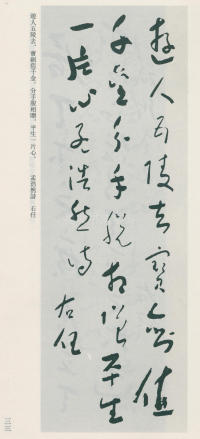 遊人五陵去寶劍值
千金分手脫相贈平生
一片心孟浩然詩
右任
遊人五陵去，寶劍值千金。分手脫相贈，平生一片心。 孟浩然詩 右任
三三